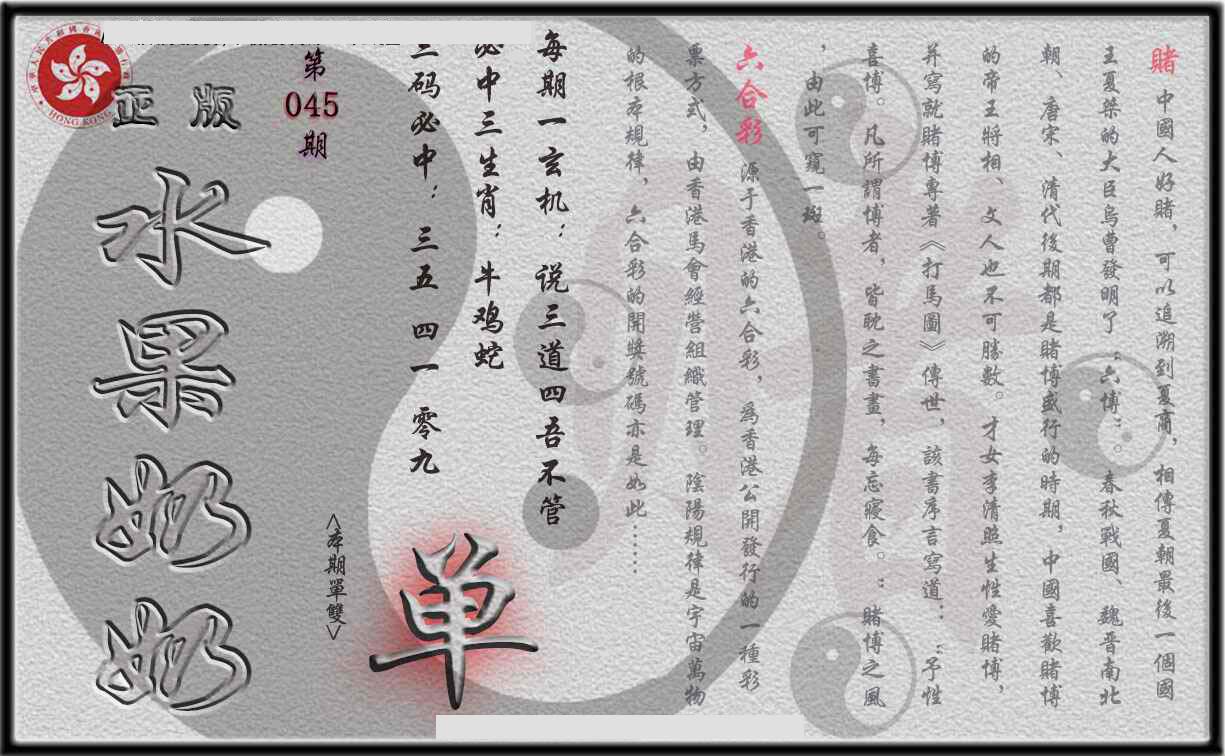 賭 中國人好賭，可以追溯到夏商，相傳夏朝最後一個國
王夏桀的大臣烏曹發明了“六博”。春秋戰國、魏晋南北
朝、唐宋、清代後期都是賭博盛行的時期，中國喜歡賭博
的帝王將相、文人也不可勝數。才女李清照生性愛賭博，
并寫就賭博專著《打馬圖》傳世，該書序言寫道：“予性
喜博。凡所謂博者，皆耽之書畫，每忘寢食。”賭博之風
，由此可窺一斑。
六合彩 源于香港的六合彩，爲香港公開發行的一種彩
票方式，由香港馬會經營組織管理。陰陽規律是宇宙萬物
的根本規律，六合彩的開獎號碼亦是如此……
每期一玄机：说三道四吾不管
必中三生肖：牛鸡蛇
三码必中：三五 四一 零九
单
<本期單雙>
第
045
期
正版
水果奶奶
HONG KONG